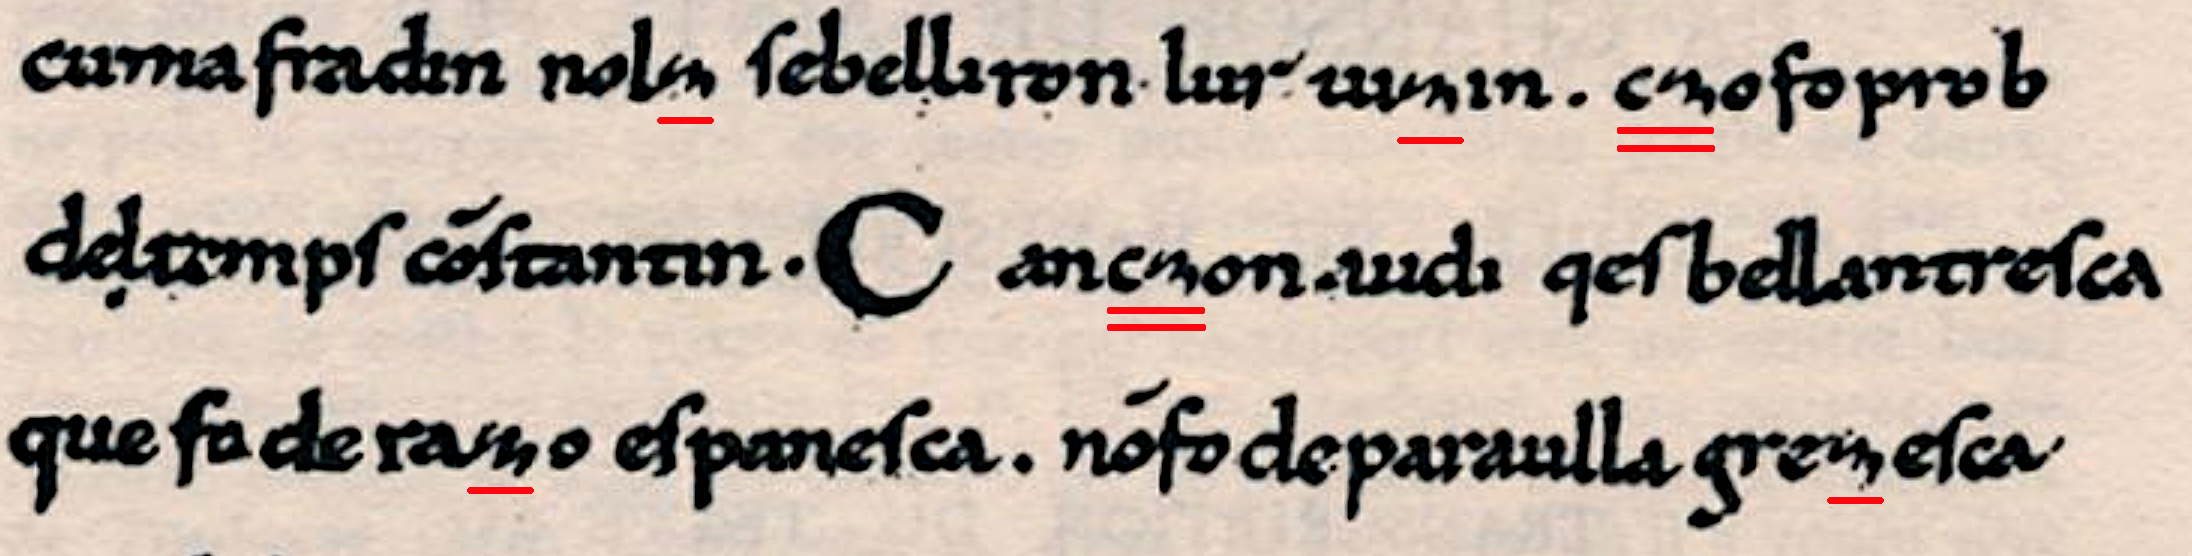 cuma fradin nolz ſebelliron lur uizin. czo fo prob
del tempſ cõſtantin. C anczon audi qeſ bellantreſca
que fo de razo eſpaneſca. nõ fo de paraulla grezeſca